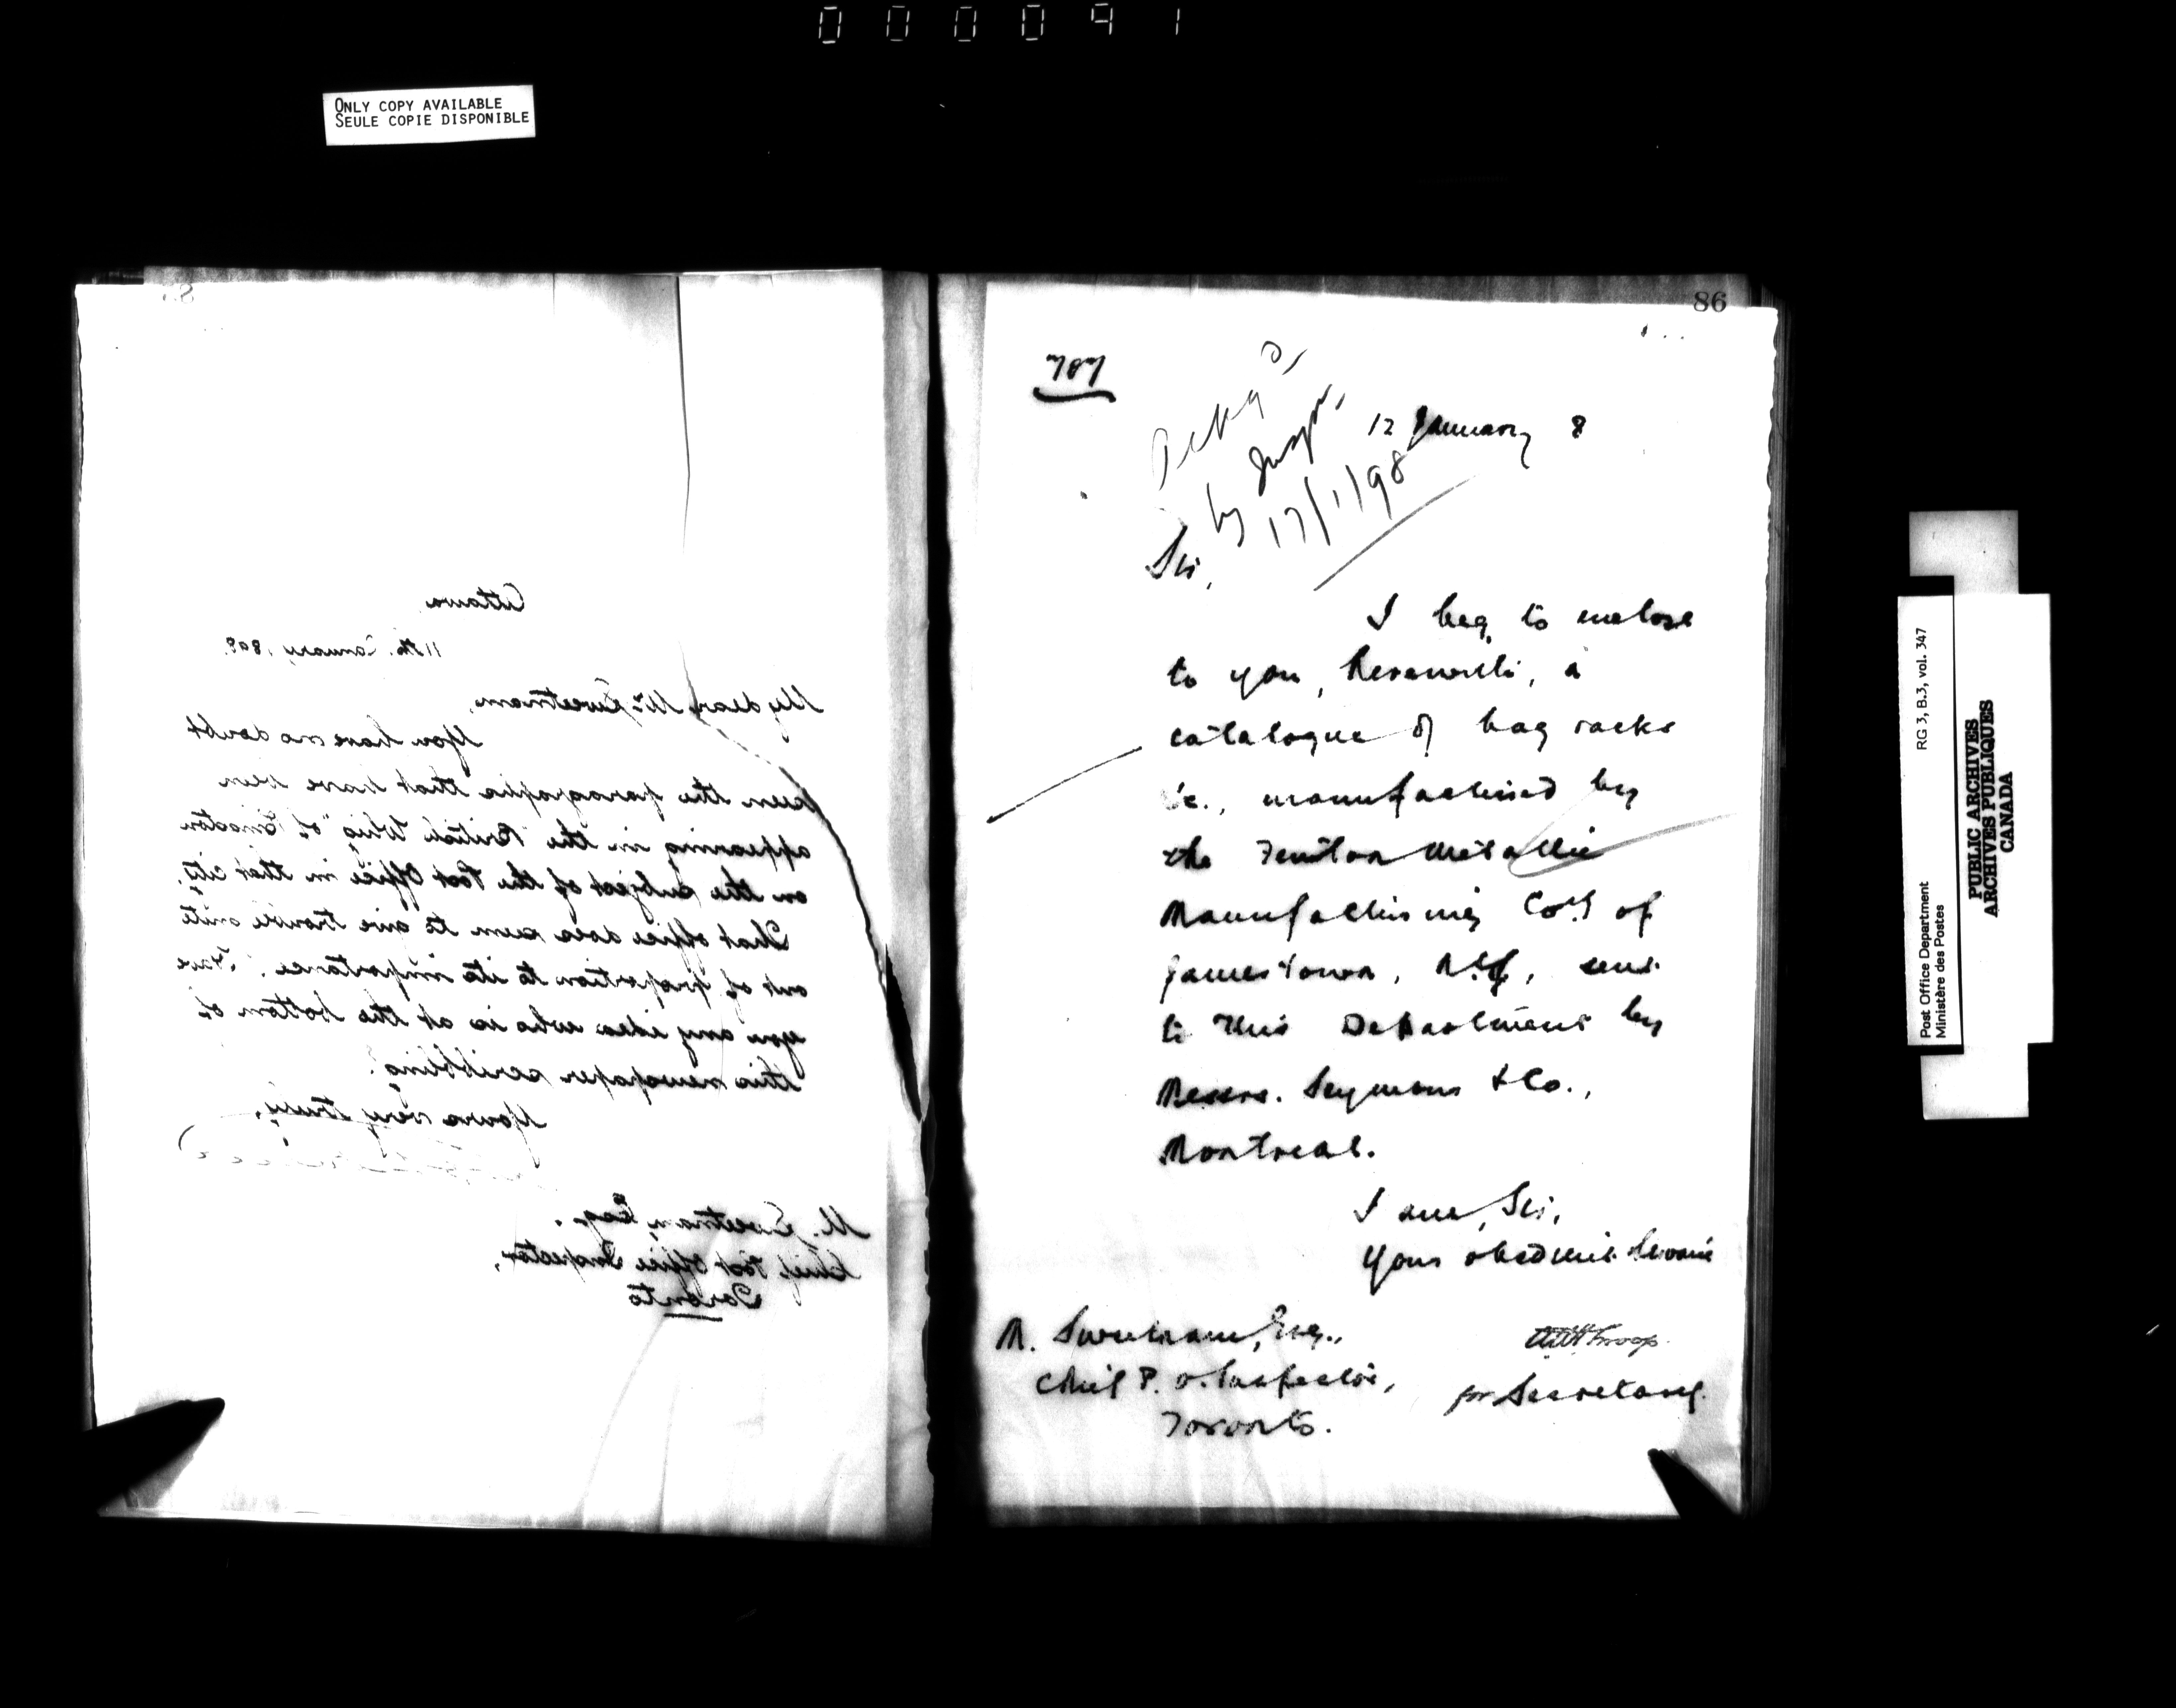 000091
ONLY COPY AVAILABLE
SEULE COPIE DISPONIBLE
Ottawa
11th January, 1898.
My dear Mr. Sweetnam,
You have no doubt
seen the paragraphs that have been
appearing in the "British Whig" of Kingston
on the subject of the Post Office in that city.
That office does seem to give trouble quite
out of proportion to its importance. Have
you any idea who is at the bottom of
this newspaper scribbling?
Yours very truly,
M. Sweetnam, Esq.,
Chief Post Office Inspector,
Toronto
86
707
12 January 8
by Inspr.
17/1/98
Sir,
I beg to enclose
to you, herewith, a
catalogue of bag racks
&c., manufactured by
the Fenton Metallic
Manufacturing Coy of
Jamestown, N.Y., sent
to this Department by
Messrs. Seymour & Co.,
Montreal.
I am, Sir,
Your obedient Servant
M. Sweetnam, Esq.,
Chief P. O. Inspector,
Toronto.
for Secretary.
Post Office Department
Ministère des Postes
RG 3, B.3, vol. 347
PUBLIC ARCHIVES
ARCHIVES PUBLIQUES
CANADA